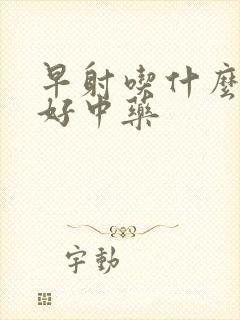 早射喫什麼
好中藥
字動